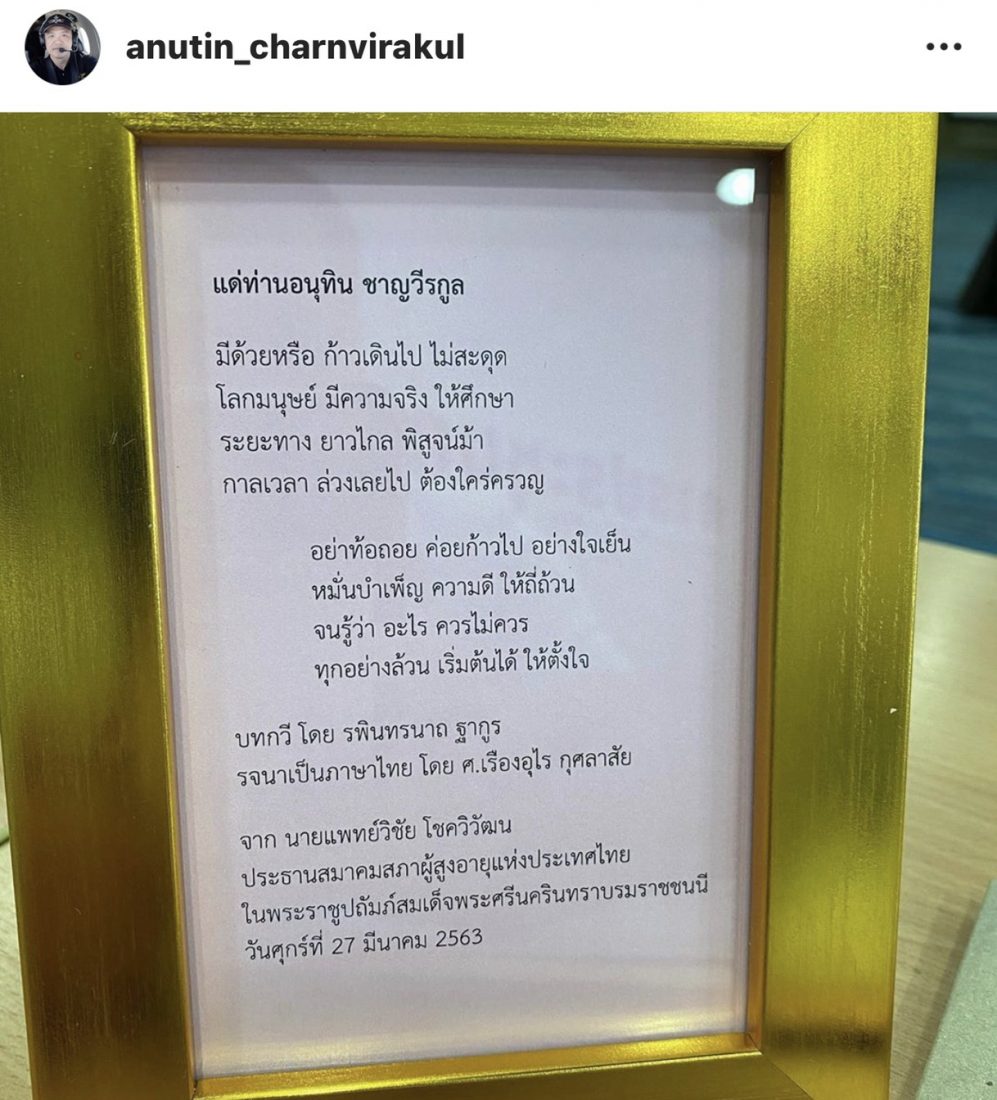 anutin_charnvirakul
แด่ท่านอนุทิน ชาญวีรกูล
มีด้วยหรือ ก้าวเดินไป ไม่สะดุด
โลกมนุษย์ มีความจริง ให้ศึกษา
ระยะทาง ยาวไกล พิสูจน์ม้า
กาลเวลา ล่วงเลยไป ต้องใคร่ครวญ
อย่าท้อถอย ค่อยก้าวไป อย่างใจเย็น
หมั่นบำเพ็ญ ความดี ให้ถี่ถ้วน
จนรู้ว่า อะไร ควรไม่ควร
ทุกอย่างล้วน เริ่มต้นได้ ให้ตั้งใจ
บทกวี โดย รพินทรนาถ ฐากูร
รจนาเป็นภาษาไทย โดย ศ.เรืองอุไร กุศลาสัย
จาก นายแพทย์วิชัย โชควิวัฒน
ประธานสมาคมสภาผู้สูงอายุแห่งประเทศไทย
ในพระราชูปถัมภ์สมเด็จพระศรีนครินทราบรมราชชนนี
วันศุกร์ที่ 27 มีนาคม 2563